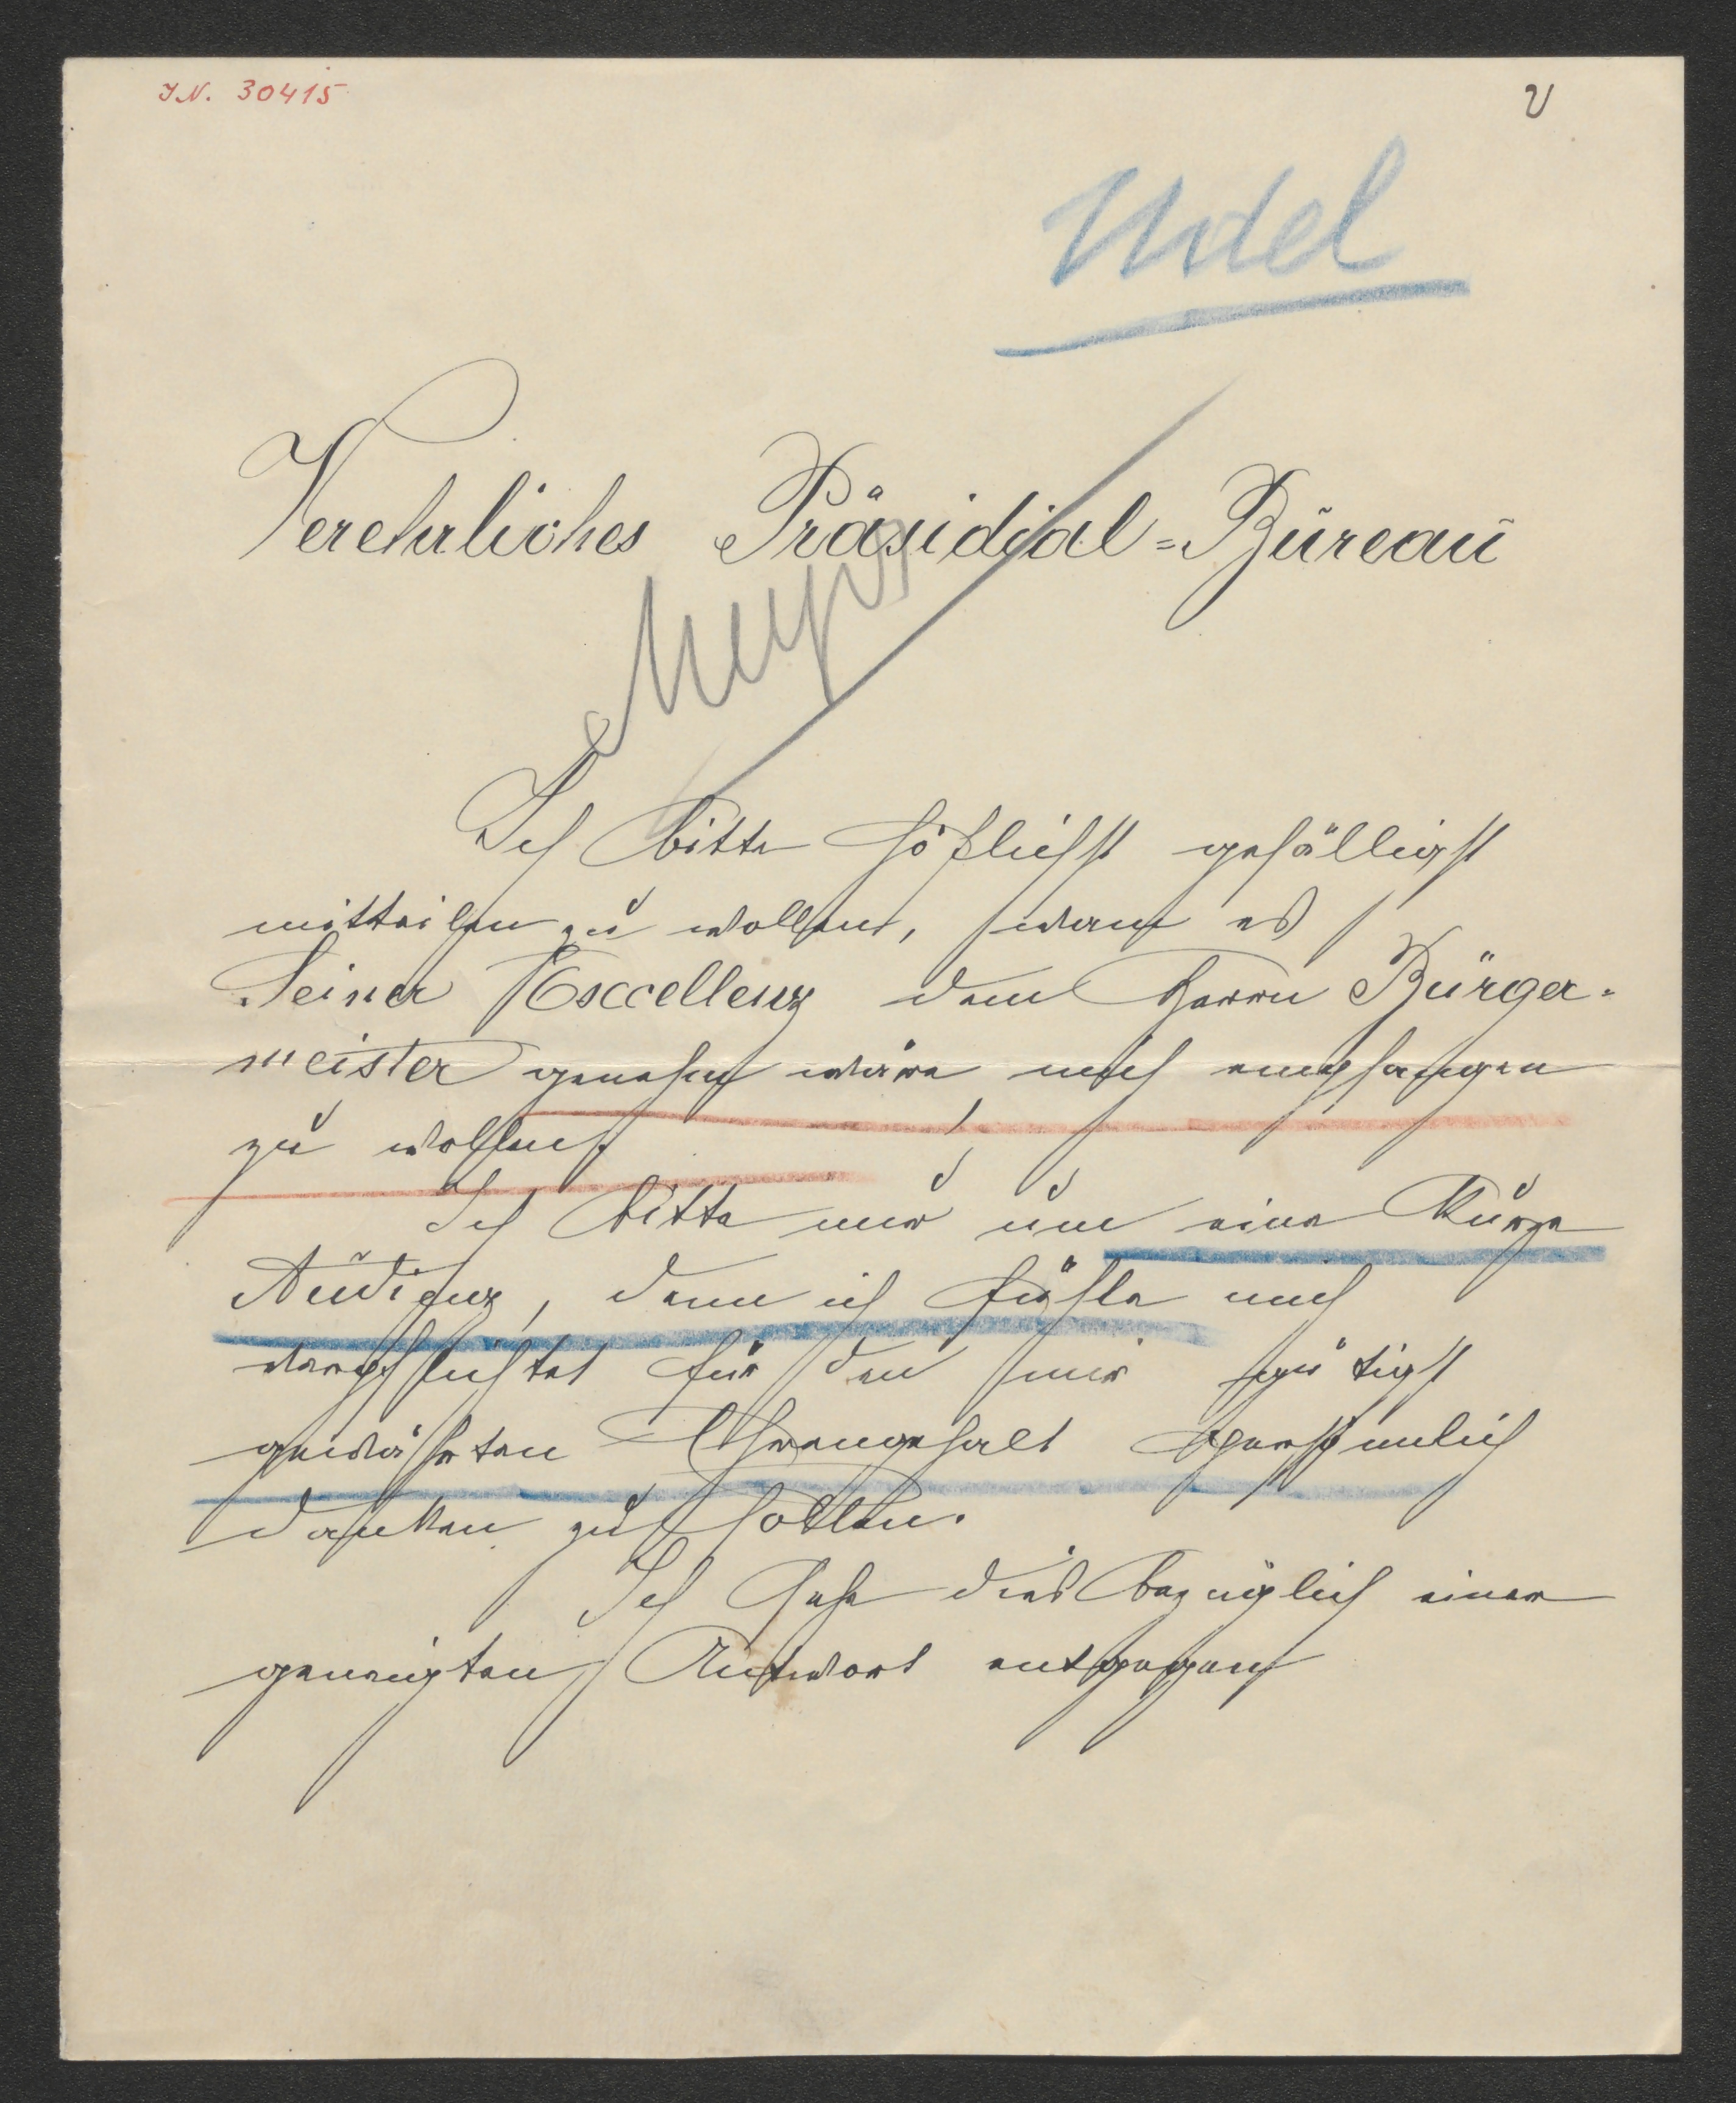 I.N. 30415
Udel
Verehrliches Präsidial=Büreau
Ich bitte höflichst gefälligst
mitteilen zu wollen, wann es
Seiner Exccellenz dem Herrn Bürger-
meister genehm wäre mich empfangen
zu wollen.
Ich bitte nur um eine kurze
Audienz, denn ich fühle mich
verpflichtet für den mir gütigst
gewährten Ehrengehalt persönlich
danken zu sollen.
Ich sehe diesbezüglich einer
geneigten Antwort entgegen